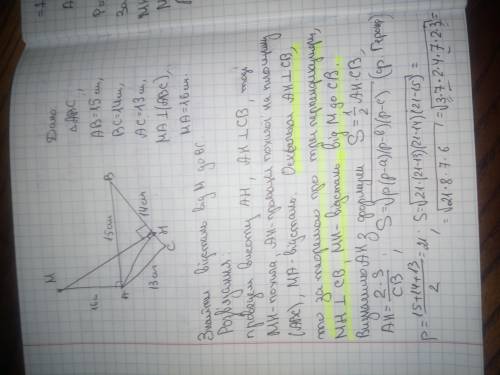 Дано:
△ABC,
AB=15см,
BC=14см,
AC=13см,
MA⊥(ABC),
MA=16см.
M
16см
A
15см
B
14см
H
C
13см
Знайти відстань від M до BC
Розвязання
проведем висоту AH, AH⊥CB, тоді
MH-похила, AH-проекція похилої на площину
(ABC), MA-відстань. Оскільки AH⊥CB,
то за теоремою про три перпендикуляри,
MH⊥CB, MH-відстань від M до CB.
Визначимо AH з формули S=1/2 AH·CB,
AH=2·S/CB, S=√p(p-a)(p-b)(p-c) (ф. Герона)
P=15+14+13/2=21, S=√21·(21-13)(21-14)(21-15)=
=√21·8·7·6=√3·7·2·4·7·2·3=